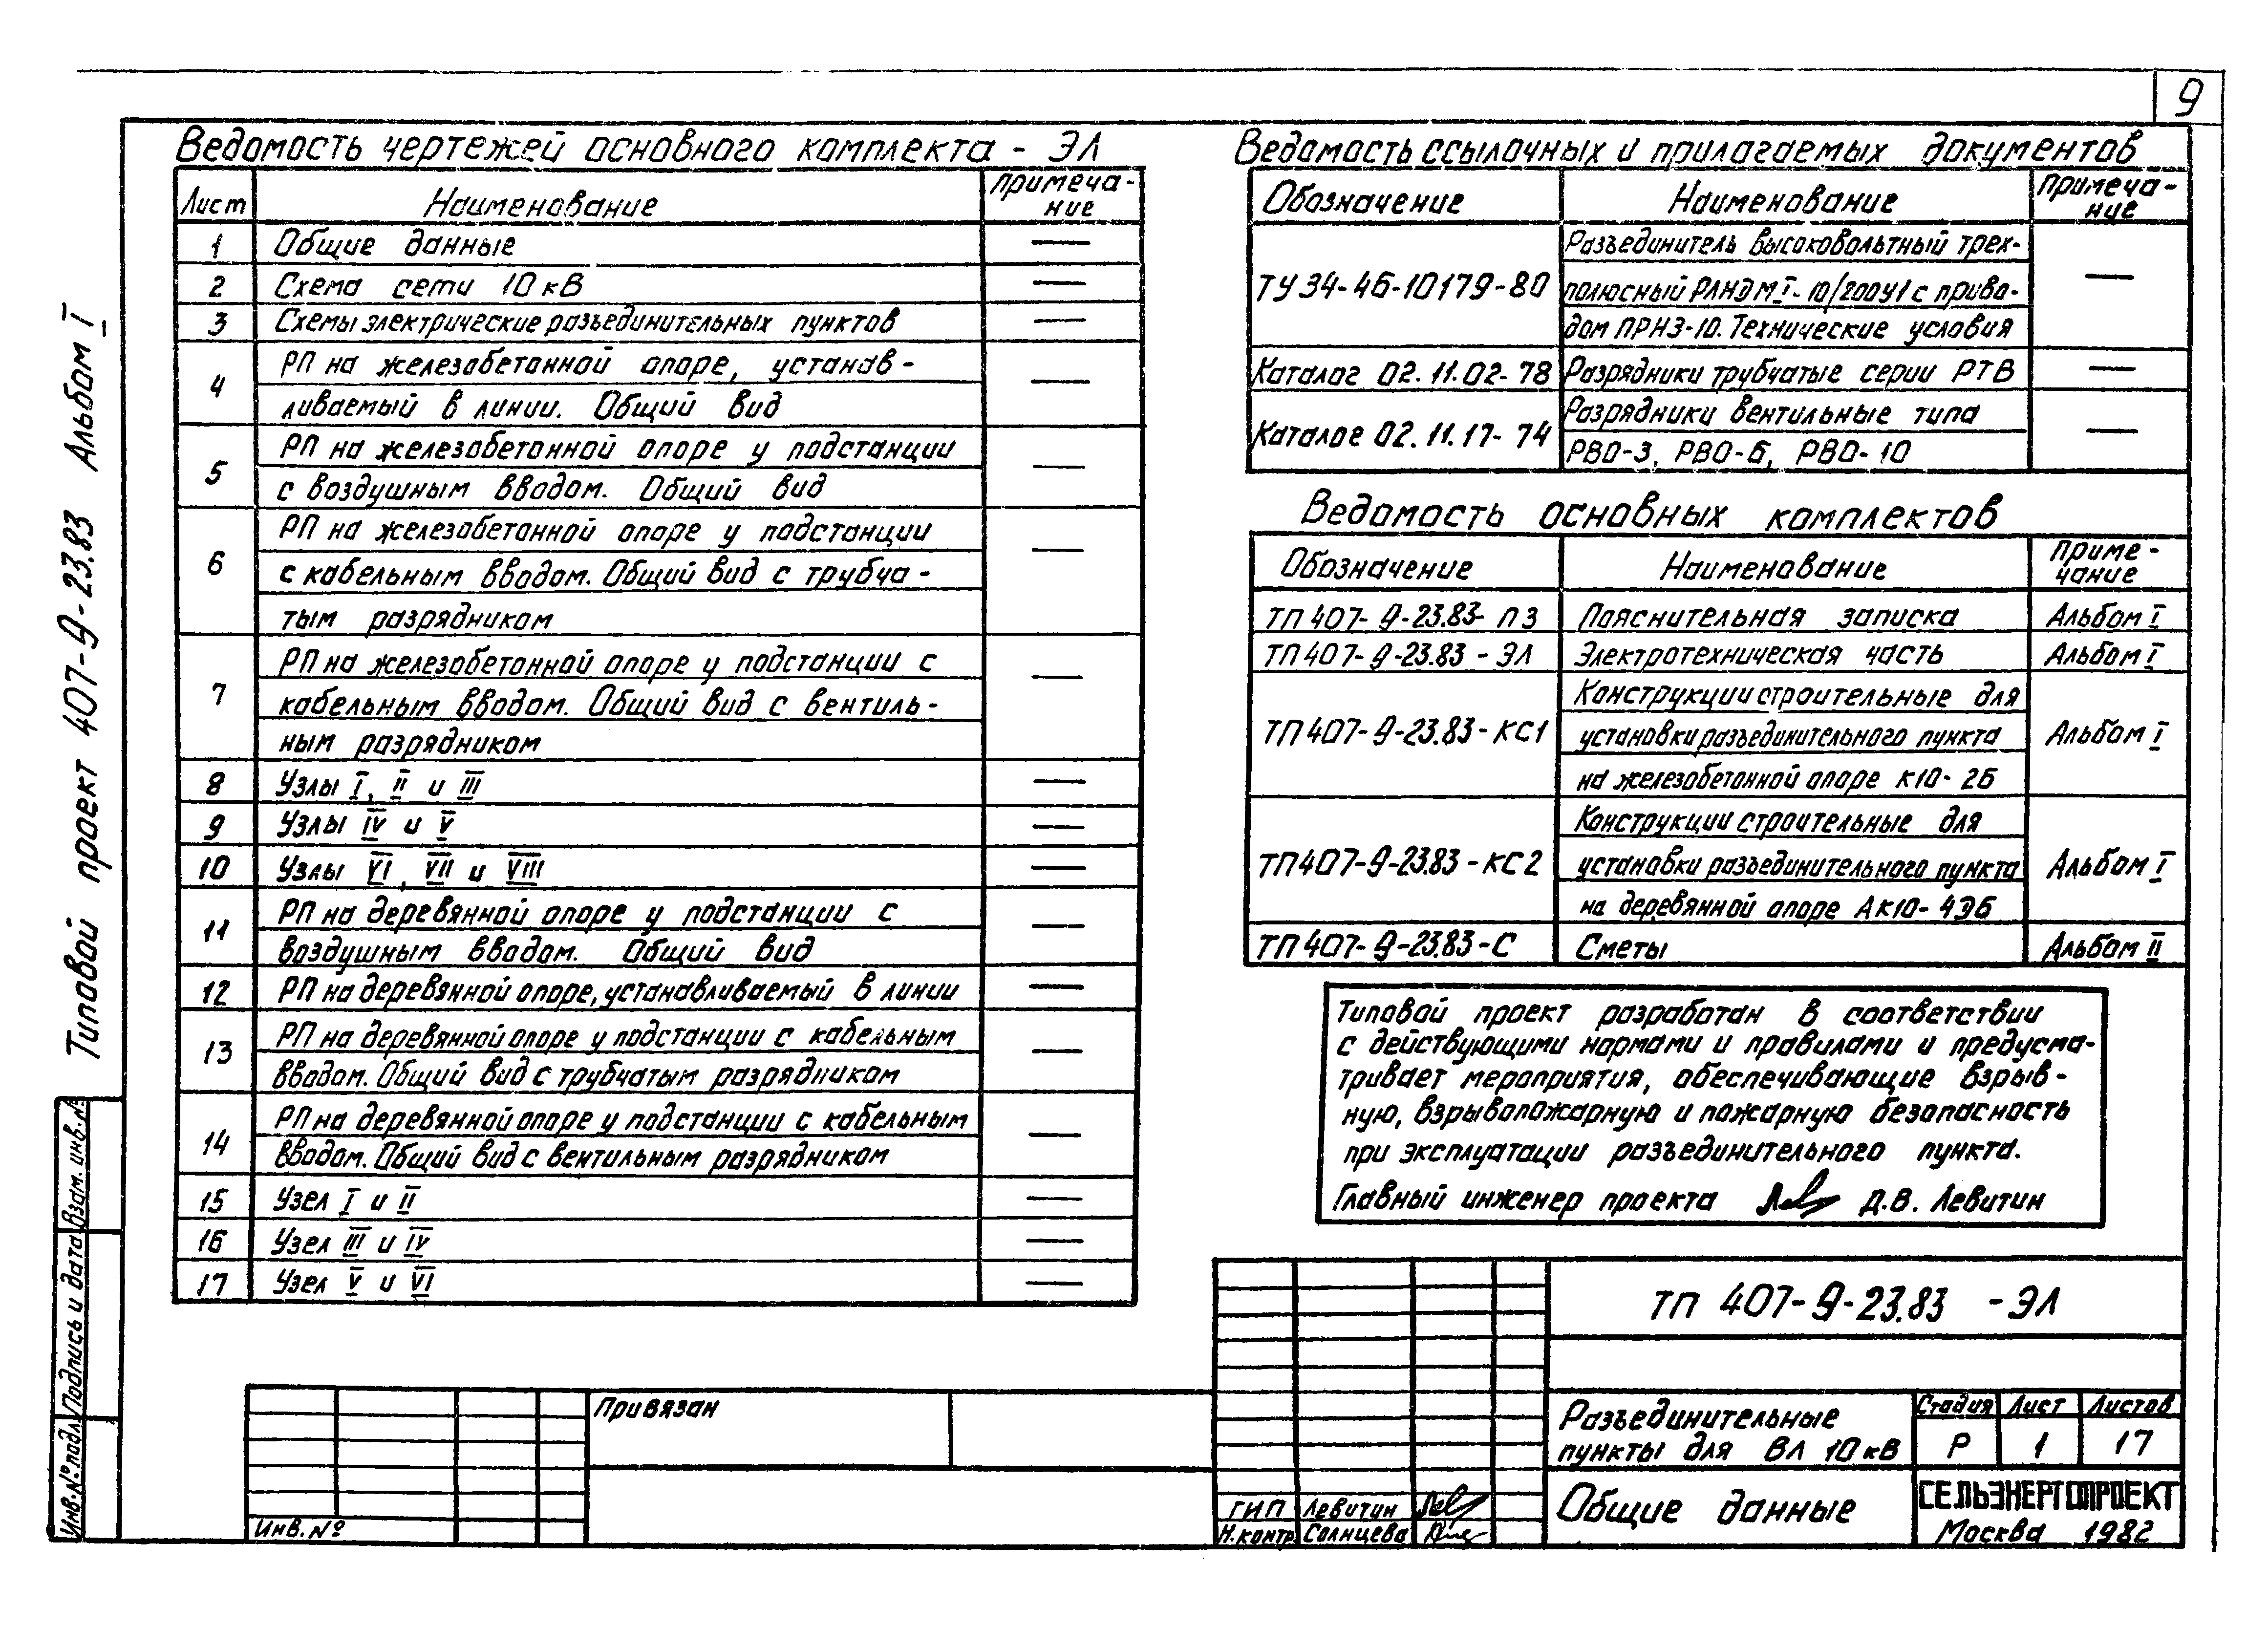 9
Типовой проект 407-9-23.83 Альбом I
Ведомость чертежей основного комплекта - ЭЛ
Лист Наименование Примеча-
ние
1 Общие данные —
2 Схема сети 10 кВ —
3 Схемы электрические разъединительных пунктов —
4 РП на железобетонной опоре, устанав-
ливаемый в линии. Общий вид —
5 РП на железобетонной опоре у подстанции
с воздушным вводом. Общий вид —
6 РП на железобетонной опоре у подстанции
с кабельным вводом. Общий вид с трубча-
тым разрядником —
7 РП на железобетонной опоре у подстанции с
кабельным вводом. Общий вид с вентиль-
ным разрядником —
8 Узлы I, II и III —
9 Узлы IV и V —
10 Узлы VI, VII и VIII —
11 РП на деревянной опоре у подстанции с
воздушным вводом. Общий вид —
12 РП на деревянной опоре, устанавливаемый в линии —
13 РП на деревянной опоре у подстанции с кабельным
вводом. Общий вид с трубчатым разрядником —
14 РП на деревянной опоре у подстанции с кабельным
вводом. Общий вид с вентильным разрядником —
15 Узел I и II —
16 Узел III и IV —
17 Узел V и VI —
Ведомость ссылочных и прилагаемых документов
Обозначение Наименование Примеча-
ние
ТУ 34-46-10179-80 Разъединитель высоковольтный трех-
полюсный РЛНДМI-10/200У1 с приво-
дом ПРНЗ-10. Технические условия —
Каталог 02.11.02-78 Разрядники трубчатые серии РТВ —
Каталог 02.11.17-74 Разрядники вентильные типа
РВО-3, РВО-6, РВО-10 —
Ведомость основных комплектов
Обозначение Наименование Приме-
чание
ТП 407-9-23.83-ПЗ Пояснительная записка Альбом I
ТП 407-9-23.83-ЭЛ Электротехническая часть Альбом I
ТП 407-9-23.83-КС1 Конструкции строительные для
установки разъединительного пункта
на железобетонной опоре К10-2Б Альбом I
ТП 407-9-23.83-КС2 Конструкции строительные для
установки разъединительного пункта
на деревянной опоре АК10-4ЭБ Альбом I
ТП 407-9-23.83-С Сметы Альбом II
Типовой проект разработан в соответствии
с действующими нормами и правилами и предусма-
тривает мероприятия, обеспечивающие взрыв-
ную, взрывопожарную и пожарную безопасность
при эксплуатации разъединительного пункта.
Главный инженер проекта Д.В. Левитин
ТП 407-9-23.83 -ЭЛ
Разъединительные
пункты для ВЛ 10 кВ
Стадия Лист Листов
Р 1 17
Общие данные
СЕЛЬЭНЕРГОПРОЕКТ
Москва 1982
ГИП Левитин
Н.контр. Солнцева
Привязан
Инв. №
Взам. инв. №
Подпись и дата
Инв. № подл.